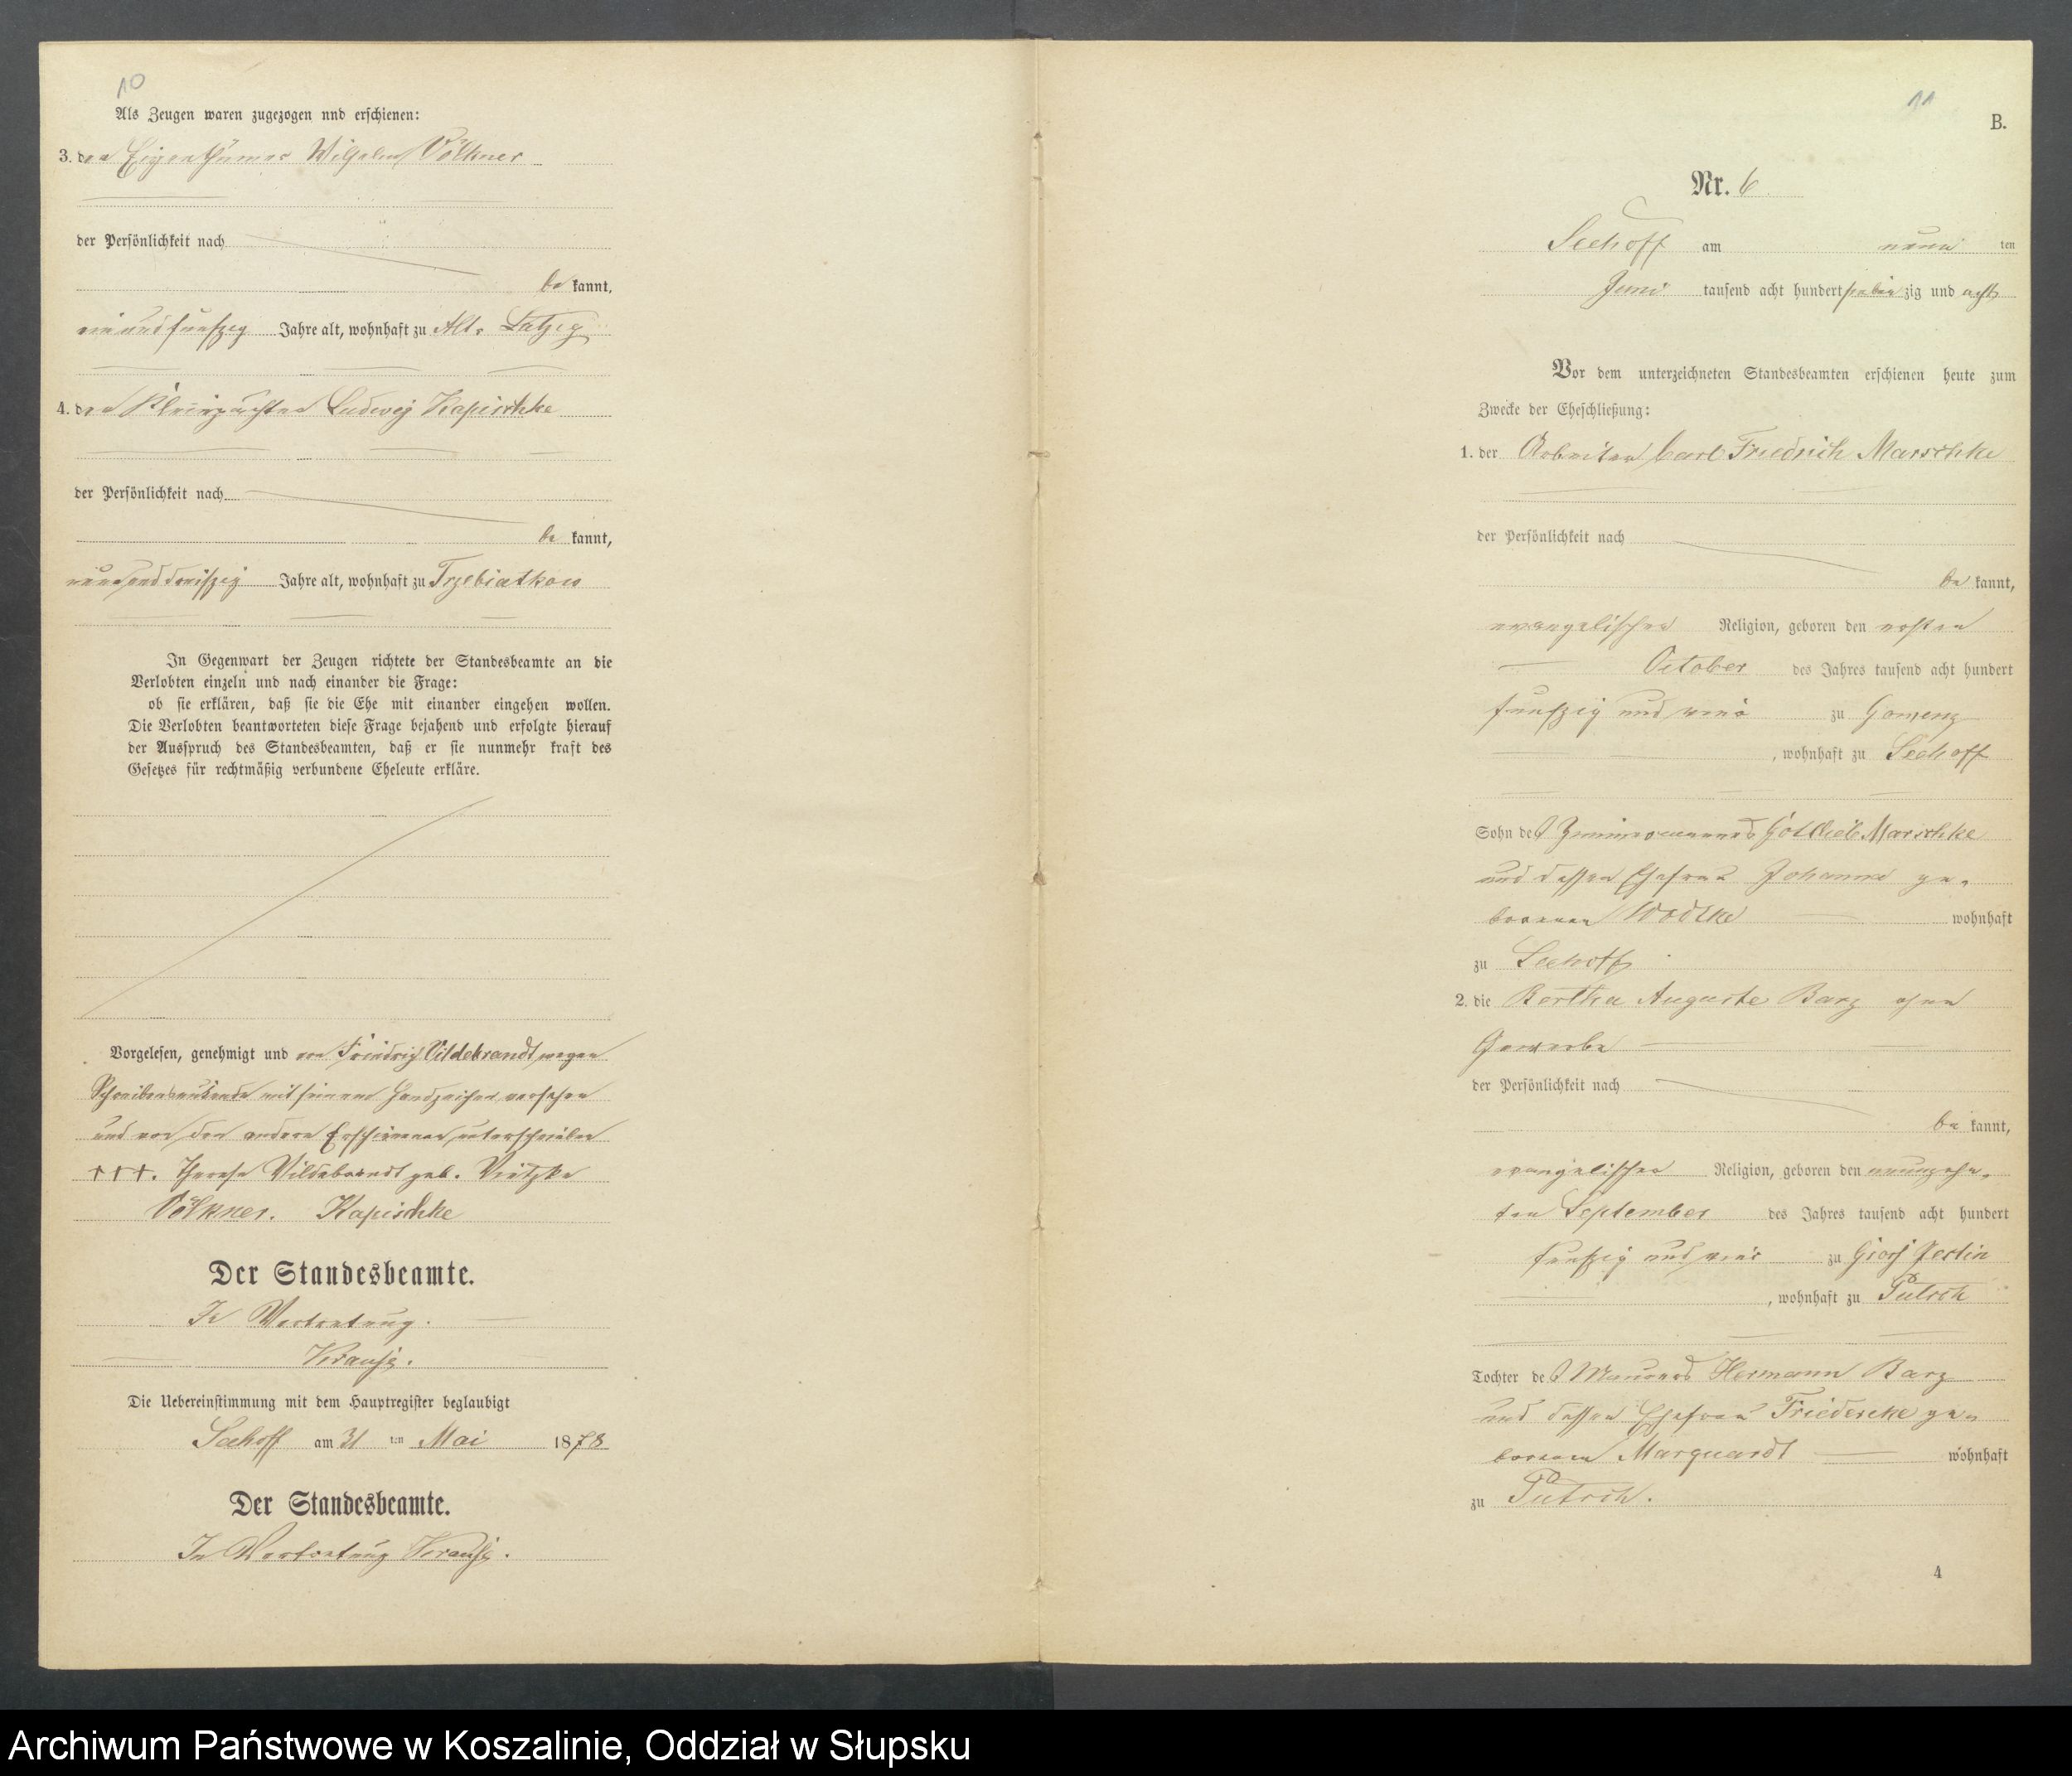 10
Als Zeugen waren zugezogen und erschienen:
3. der Eigenthümer Wilhelm Völkner
der Persönlichkeit nach
be kannt,
ein und funfzig Jahre alt, wohnhaft zu Alt- Latzig
4. der Kleinpächter Ludwig Kapischke
der Persönlichkeit nach
be kannt,
neun und dreißzig Jahre alt, wohnhaft zu Trzebiatkow
In Gegenwart der Zeugen richtete der Standesbeamte an die
Verlobten einzeln und nach einander die Frage:
ob sie erklären, daß sie die Ehe mit einander eingehen wollen.
Die Verlobten beantworteten diese Frage bejahend und erfolgte hierauf
der Ausspruch des Standesbeamten, daß er sie nunmehr kraft des
Gesetzes für rechtmäßig verbundene Eheleute erkläre.
Vorgelesen, genehmigt und von Friedrich Vildebrandt wegen
Schreibensunkunde mit seinem Handzeichen versehen
und von den andern Erschienenen unterschrieben
+++. Therese Vildebrandt geb. Vietzke
Völkner. Kapischke
Der Standesbeamte.
In Vertretung.
Krause.
Die Uebereinstimmung mit dem Hauptregister beglaubigt
Seehoff am 31 ten Mai 1878
Der Standesbeamte.
In Vertretung Krause.
11
B.
Nr. 6
Seehoff am neun ten
Juni tausend acht hundert sieben zig und acht
Vor dem unterzeichneten Standesbeamten erschienen heute zum
Zwecke der Eheschließung:
1. der Arbeiter Carl Friedrich Marschke
der Persönlichkeit nach
be kannt,
evangelischer Religion, geboren den ersten
October des Jahres tausend acht hundert
funfzig und vier zu Gomenz
, wohnhaft zu Seehoff
Sohn des Zimmermanns Gottlieb Marschke
und dessen Ehefrau Johanne ge-
borenen Wodtke wohnhaft
zu Seehoff
2. die Bertha Auguste Barz ohne
Gewerbe
der Persönlichkeit nach
be kannt,
evangelischer Religion, geboren den neunzehn-
ten September des Jahres tausend acht hundert
funfzig und vier zu Groß Pertin
, wohnhaft zu Putsch
Tochter des Maurers Hermann Barz
und dessen Ehefrau Friedericke ge-
borenen Marquardt wohnhaft
zu Putsch.
4
Archiwum Państwowe w Koszalinie, Oddział w Słupsku